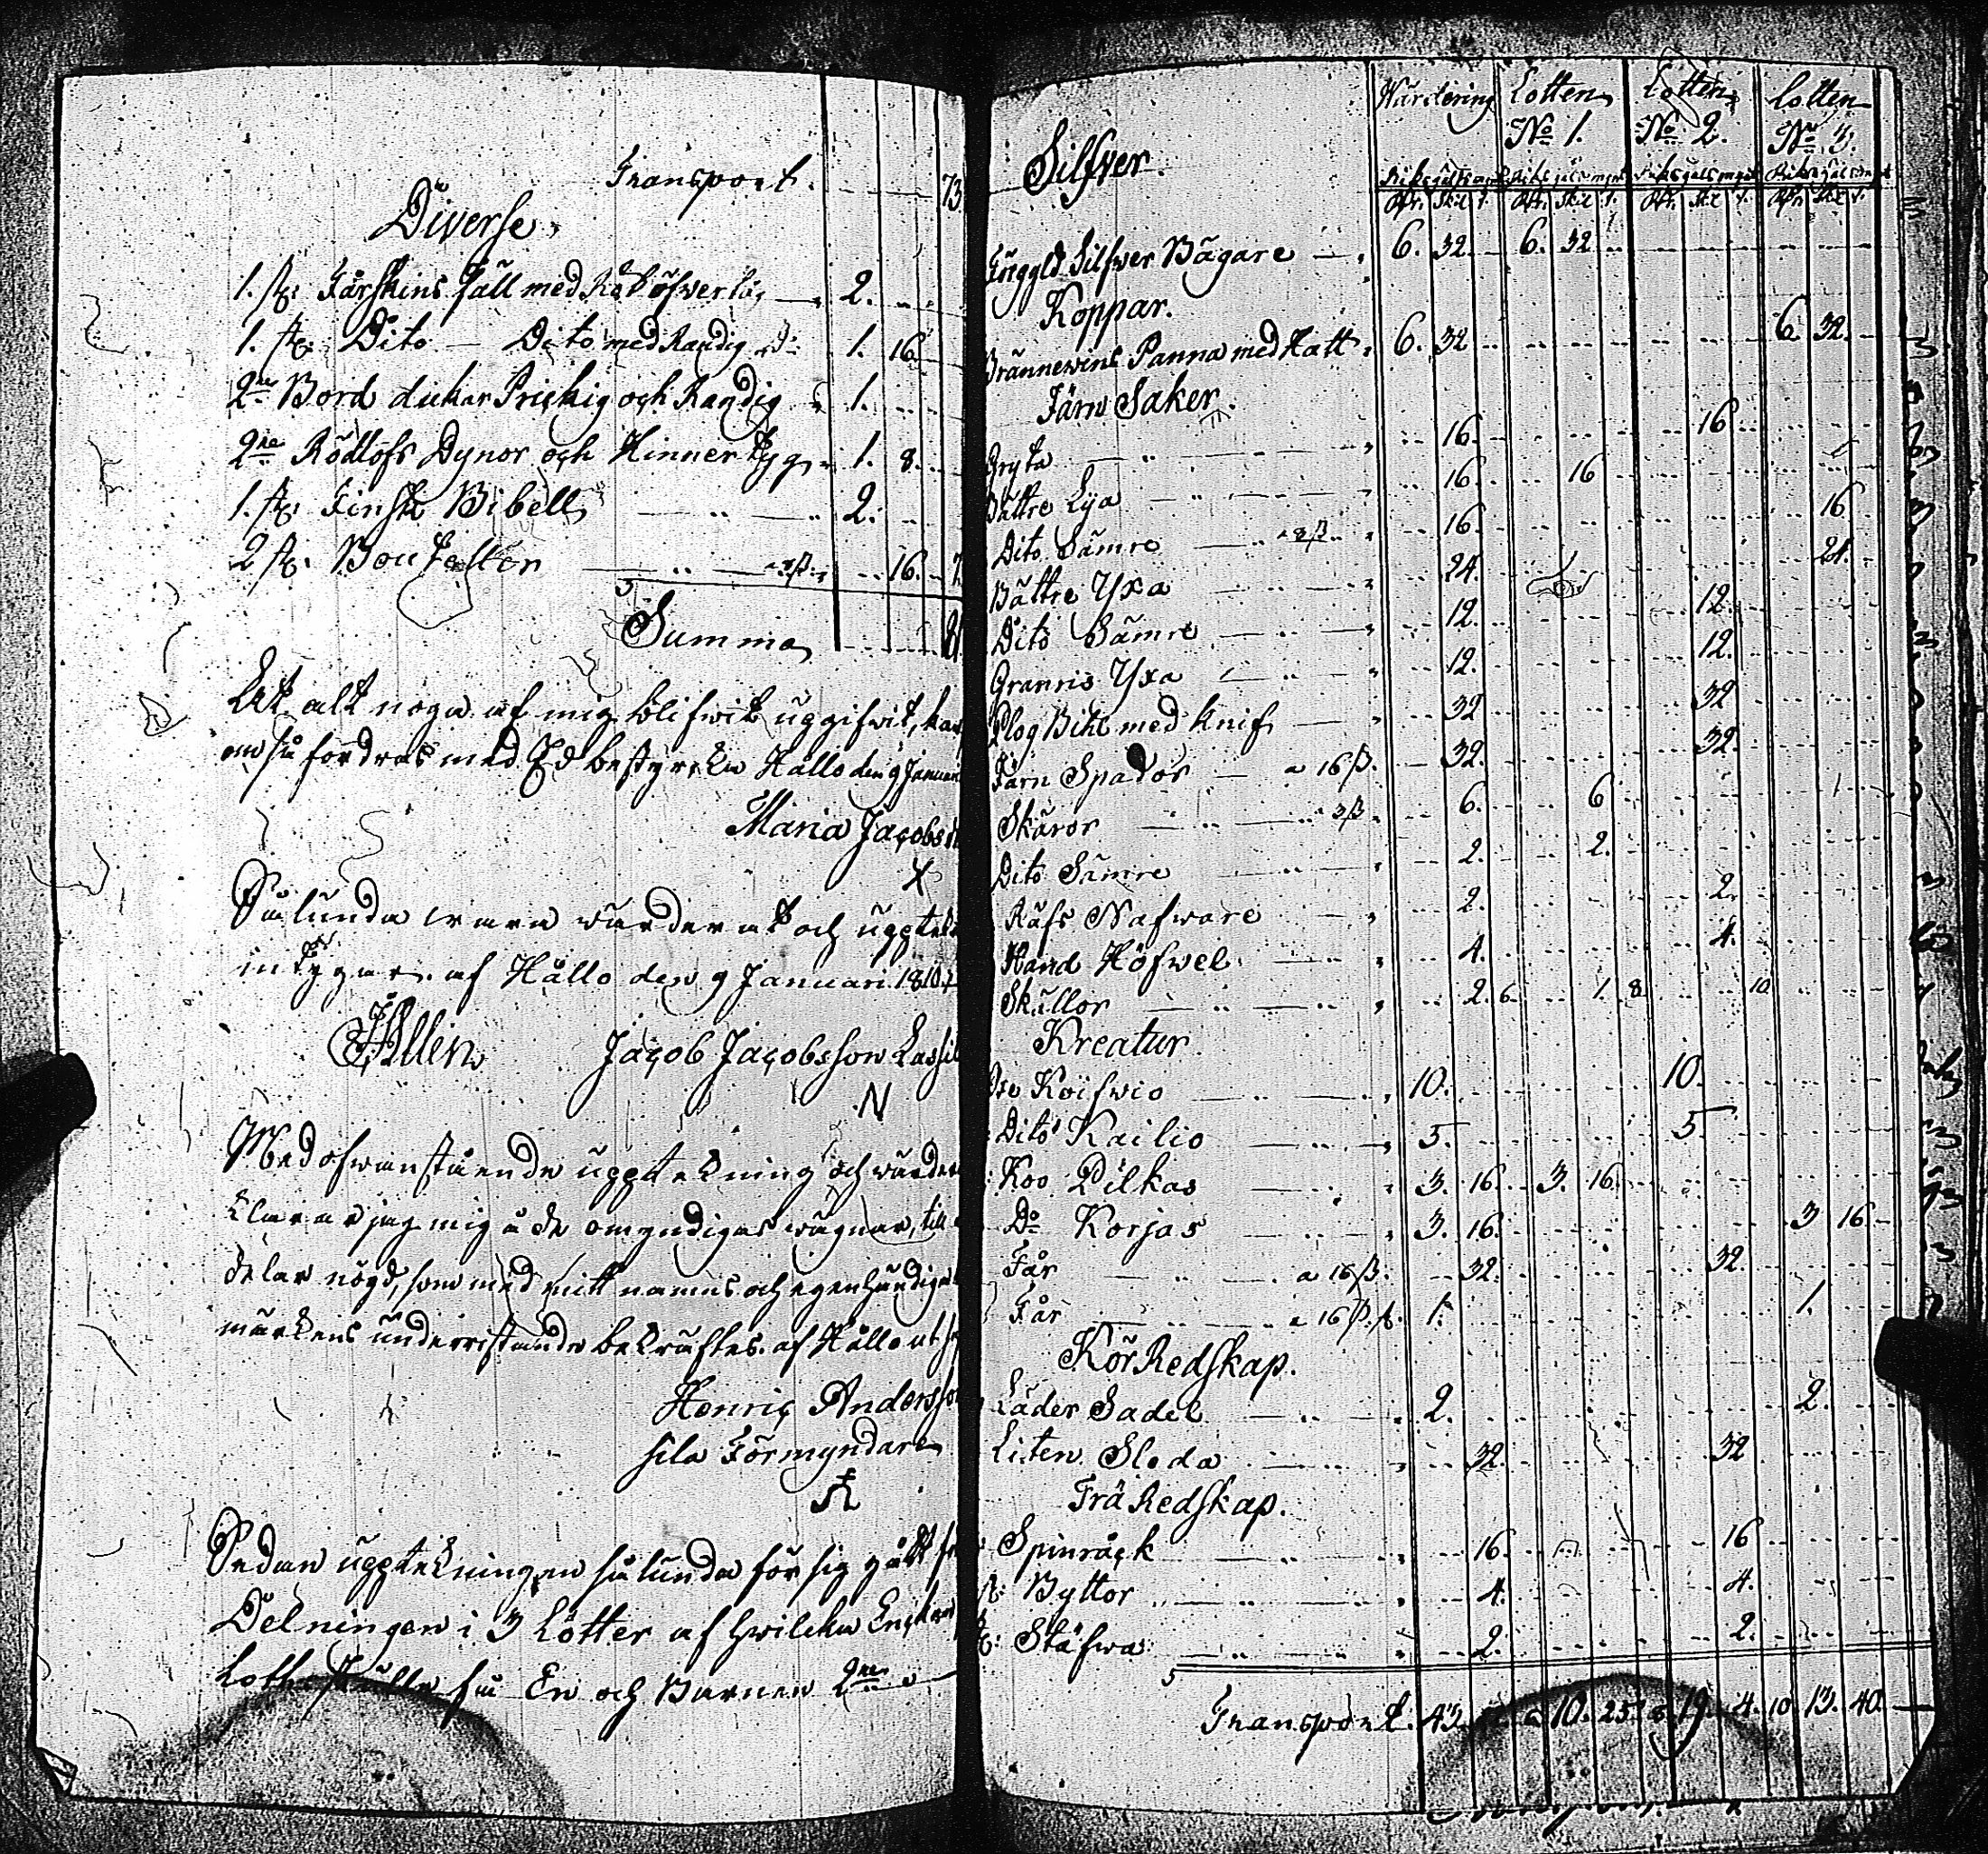 Transport. 73.
Diverse,
1. st: Fårskins Fäll med Röd öfverlög 2.
1. st: Dito — Dito med Randig Do: 1. 16.
2ne Bord dukar Prickig och Randig 1.
2ne Rödlöfs Dynor och Hinner tyg 1. 8.
1. st: Finsk Bibell 2.
2 st: Bouteller 16.
Summa
Att alt noga af mig blifwit uppgifwit, kan
om så fordras med Ed bestyrcka Hållo den 9 Januari
Maria Jacobs
X
Sålunda wara wärderat och uppteck
intygar. af Hållo den 9 Januari 1810.
Jacob Jacobsson
N
Med ofwanstående uppteckning och wärder
klarar jag mig å de omyndigas wägnar, till
delar nögd, som med mitt namns och egenhändiga
märckens underristande bekräftes. af Hållo ut
Henric Andersson
sila Förmyndare
Sedan uppteckningen sålunda för sig gått
Delningen i 3 Lotter af hwilcka Enckan
Loth skulle få En och Barnen 2ne
Wärdering Lotten Lotten Lotten
No 1. No 2. No 3.
Silfver.
Riksgäldsmynt Riksgäldsmynt Riksgäldsmynt Riksgäldsmynt
Rdr. Skil r. Rdr. Skil r. Rdr. Skil r. Rdr. Skil r.
Silfwer Bägare 6. 32. 6. 32
Koppar.
Brännewins Panna med Hatt 6. 32 6. 32.
Järn Saker.
Gryta 16. 16
Bättre Lya 16. 16
Dito Sämre a 8ß 16. 16
Bättre Yxa 24. 24.
Dito Sämre 12. 12.
Granris Yxa 12. 12.
Plog Bihl med Knif 32 32
Järn Spador a 16 ß. 32. 32.
Skäror a 3ß 6. 6
Dito Sämre 2. 2.
Räfs Nafware 2. 2.
Hand Höfwel 4. 4.
Skällor 2. 6. 1. 8. 10
Kreatur.
Koifwio 10. 10.
Dito Kailio 5. 5.
Koo Pilkas 3. 16. 3. 16.
Do Korjas 3. 16. 3 16.
Får a 16 ß. 32. 32.
Får a 16 ß. st. 1. 1.
Kör Redskap.
Läder Sadel 2. 2.
Liten Sleda 32. 32
Trä Redskap.
Spinråck 16. 16
Byttor 4. 4.
Stäfwa 2. 2.
Transport. 43. 10. 25. 8. 19. 4. 10 13. 40.